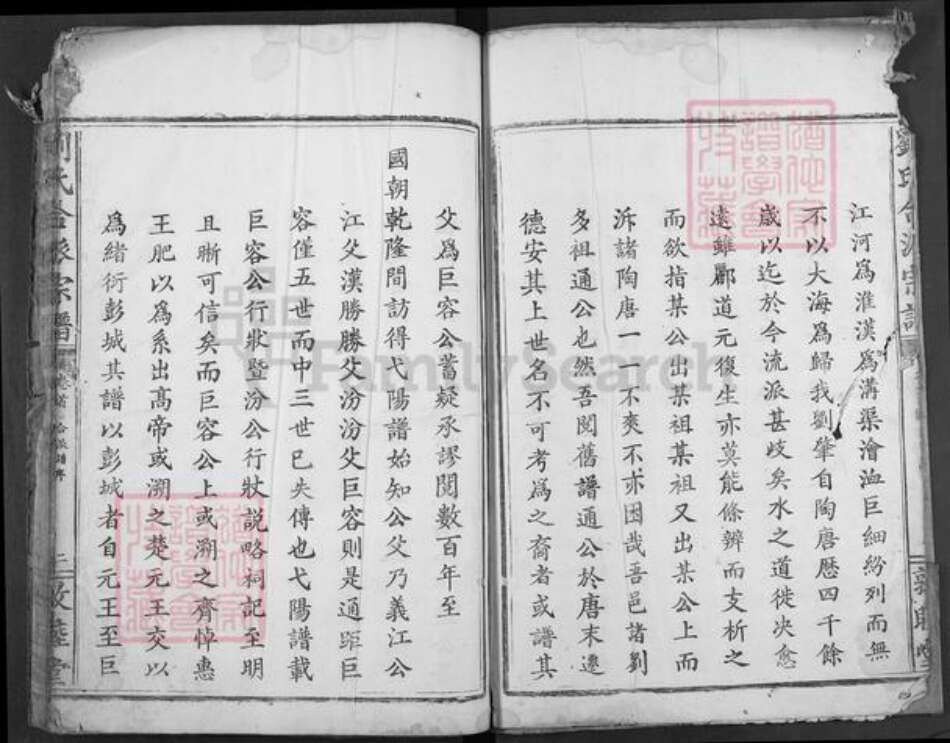 江河爲淮漢爲溝渠澮洫巨細紛列而無
不以大海爲歸我劉肇自陶唐歷四千餘
歲以迄於今流派甚歧矣水之道徙決愈
遠雖酈道元復生亦莫能條辨而支析之
而欲指某公出某祖某祖又出某公上而
泝諸陶唐一一不爽不亦困哉吾邑諸劉
多祖通公也然吾閱舊譜通公於唐末遷
德安其上世名不可考爲之裔者或譜其
父爲巨容公蓄疑承謬閱數百年至
國朝乾隆間訪得弋陽譜始知公父乃義江公
江父漢勝勝父汾汾父巨容則是通距巨
容僅五世而中三世已失傳也弋陽譜載
巨容公行狀暨汾公行狀説略祠記至明
且晰可信矣而巨容公上或溯之齊悼惠
王肥以爲系出高帝或溯之楚元王交以
爲緒衍彭城其譜以彭城者自元王至巨
劉氏合派宗譜
敦睦堂
FamilySearch